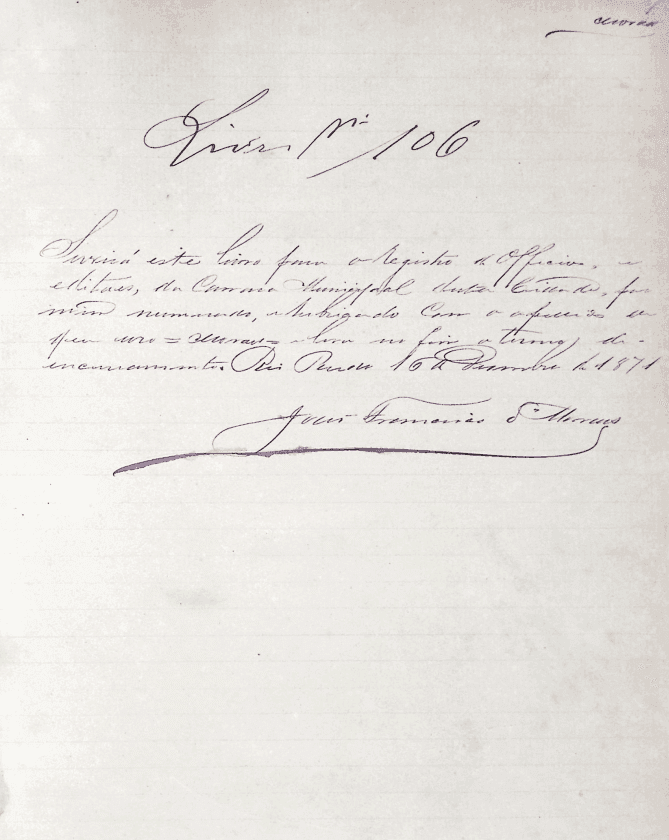 Moraes
Livro Nº 106
Servirá este livro para o Registro de Officios, e
editaes, da Camara Municipal desta Cidade, por
mim numerado, e Rubricado com o appellido de
que uso = Moraes = e leva no fim o termo, de
encerramento. Rio Pardo 16 de Dezembro de 1871
João d'a Moraes